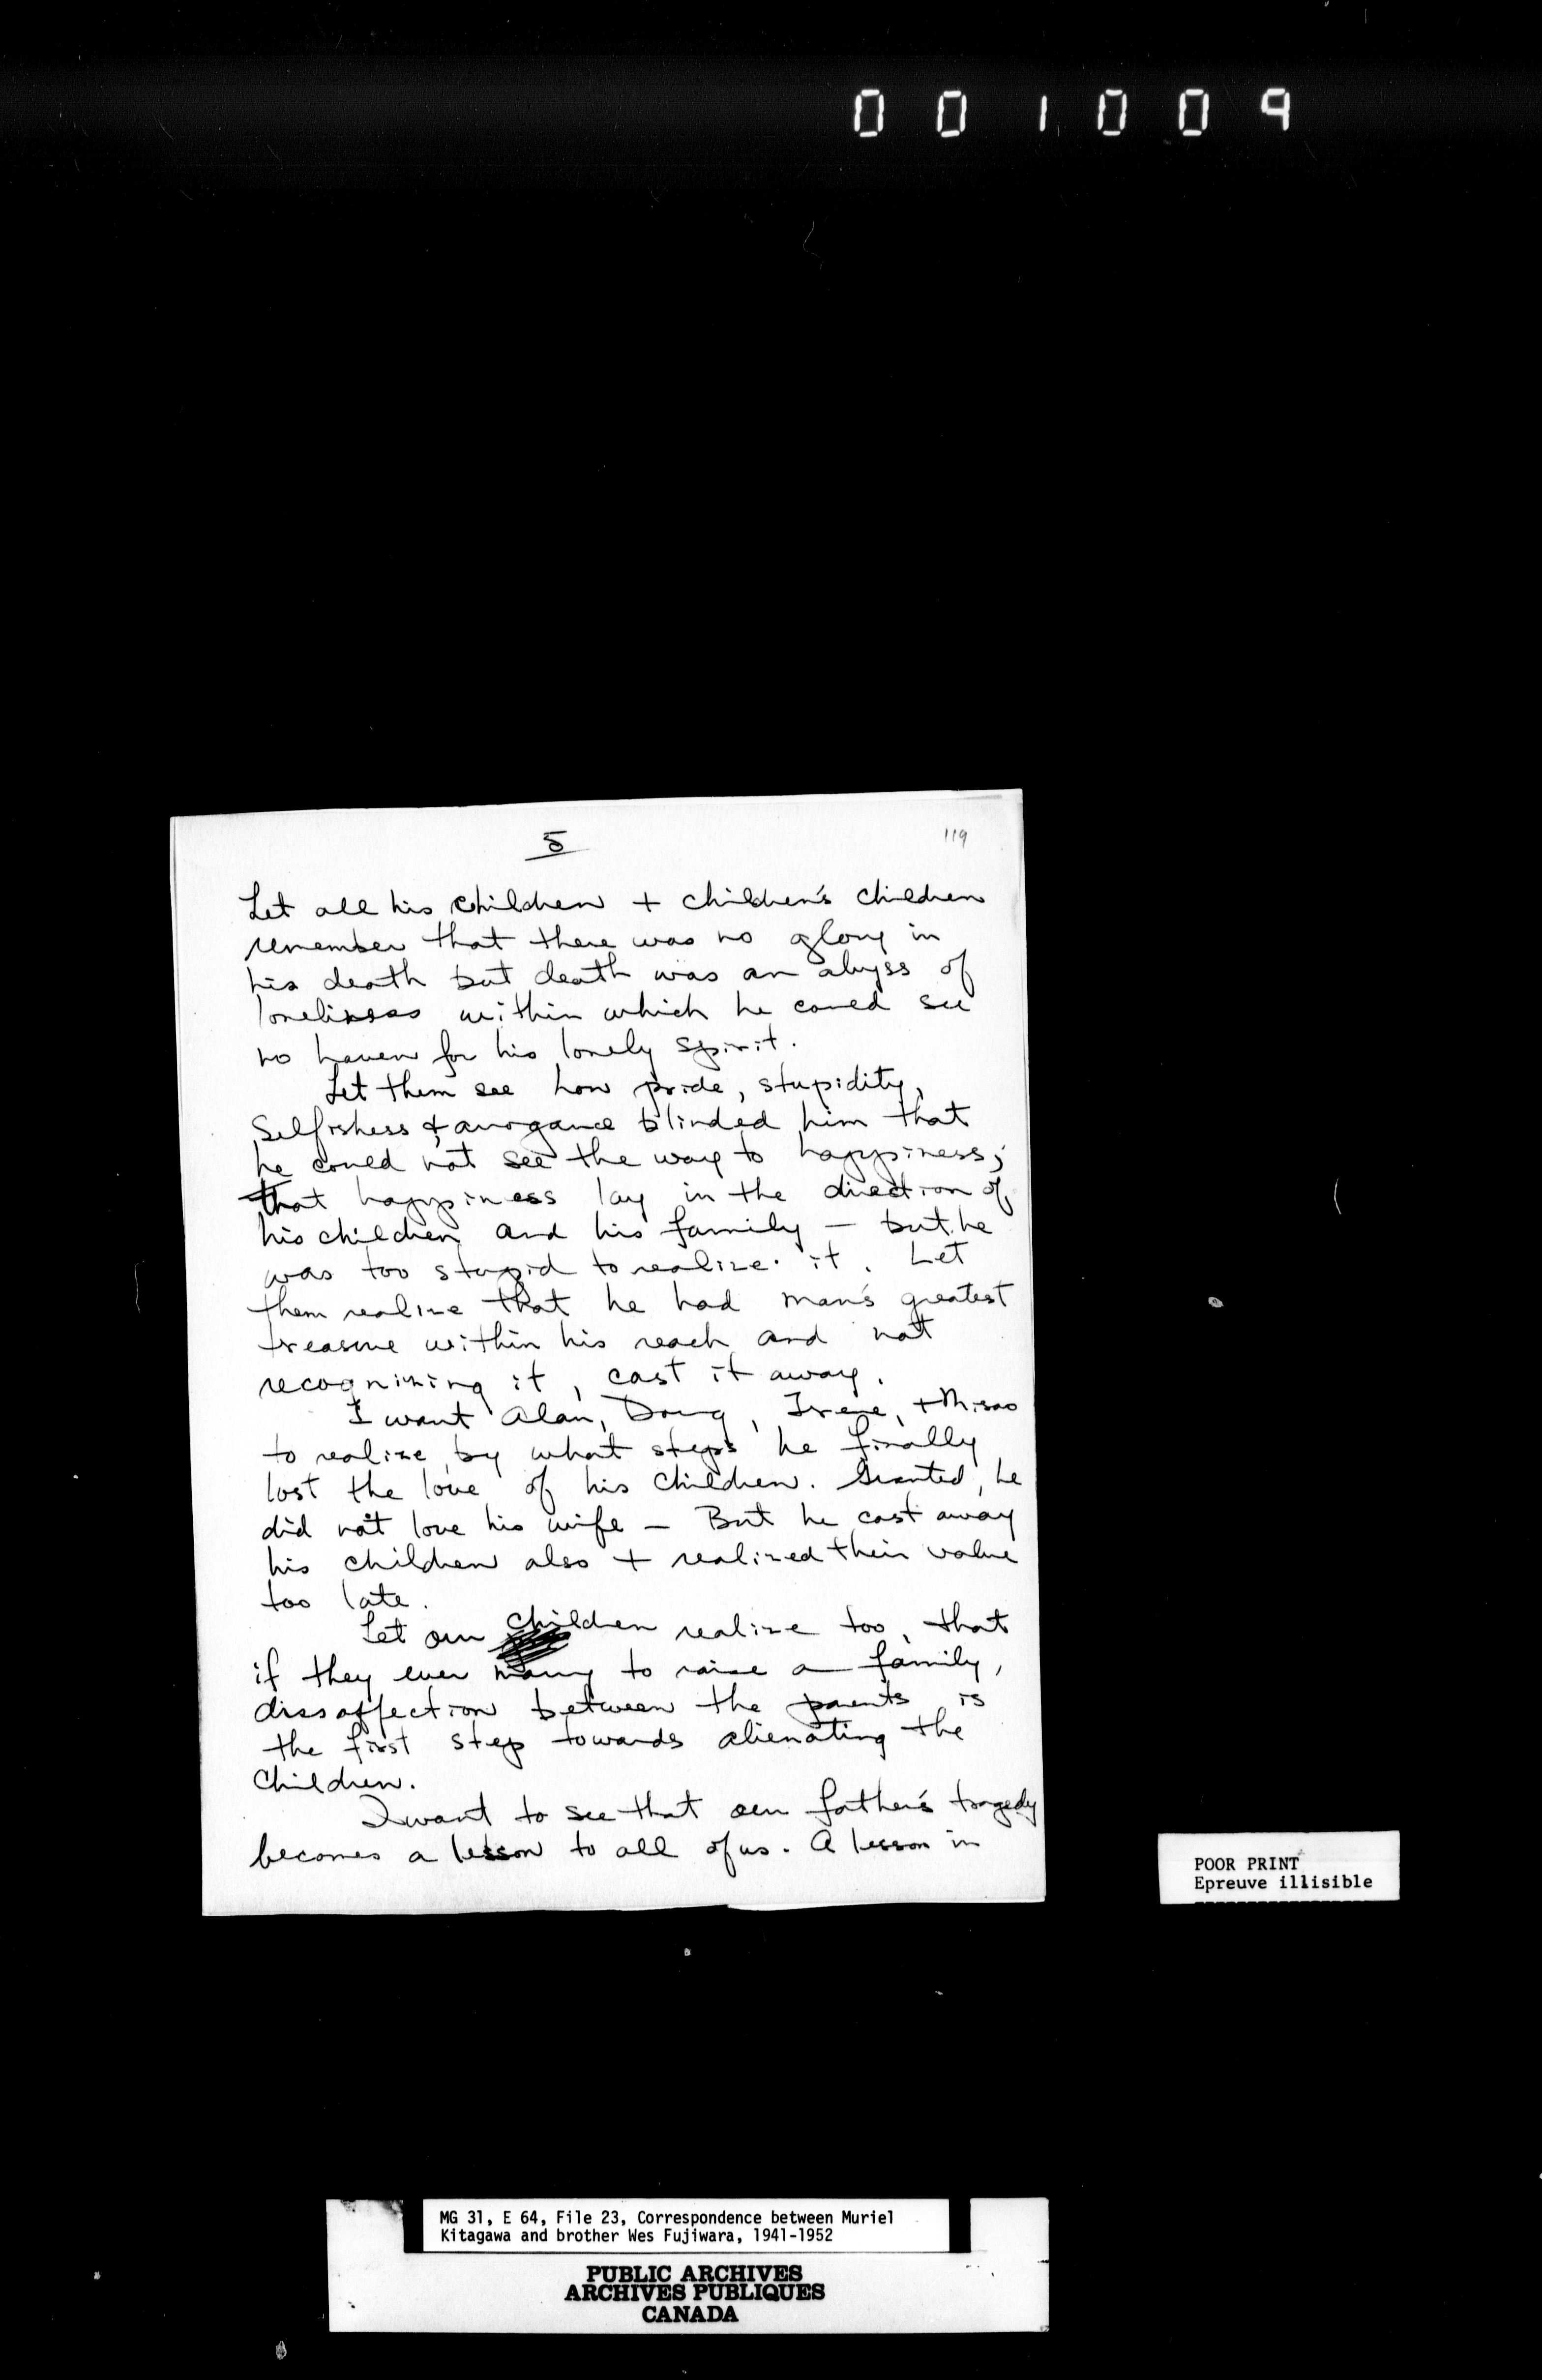 001009
5
119
Let all his children + children's children
remember that there was no glory in
his death but death was an abyss of
loneliness within which he could see
no haven for his lonely spirit.
Let them see how pride, stupidity,
selfishess & arrogance blinded him that
he could not see the way to happiness;
that happiness lay in the direction of
his children and his family — but he
was too stupid to realize it. Let
them realize that he had man's greatest
treasure within his reach and not
recognizing it, cast it away.
I want Alan, Doug, Irene, + Misao
to realize by what steps he finally
lost the love of his children. Granted, he
did not love his wife — But he cast away
his children also + realized their value
too late.
Let our children realize too, that
if they ever marry to raise a family,
dissaffection between the parents is
the first step towards alienating the
children.
I want to see that our father's tragedy
becomes a lesson to all of us. A lesson in
POOR PRINT
Epreuve illisible
MG 31, E 64, File 23, Correspondence between Muriel
Kitagawa and brother Wes Fujiwara, 1941-1952
PUBLIC ARCHIVES
ARCHIVES PUBLIQUES
CANADA